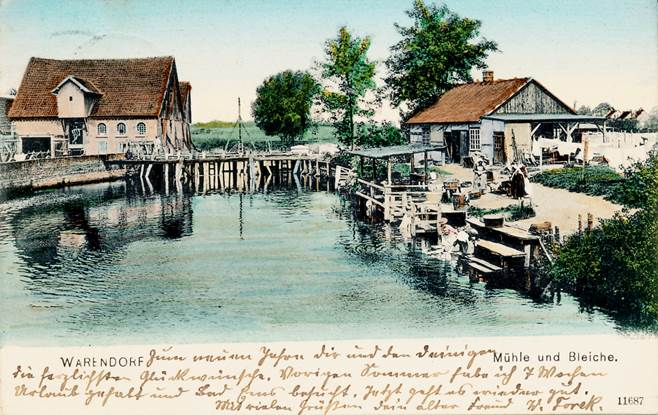 WARENDORF Zum neuen Jahre dir und den Deinigen
Mühle und Bleiche.
die herzlichsten Glückwünsche. Vorigen Sommer habe ich 7 Wochen
Urlaub gehabt und Bad Ems besucht. Jetzt geht es wieder gut.
11687
Mit vielen Grüßen dein alter Freund